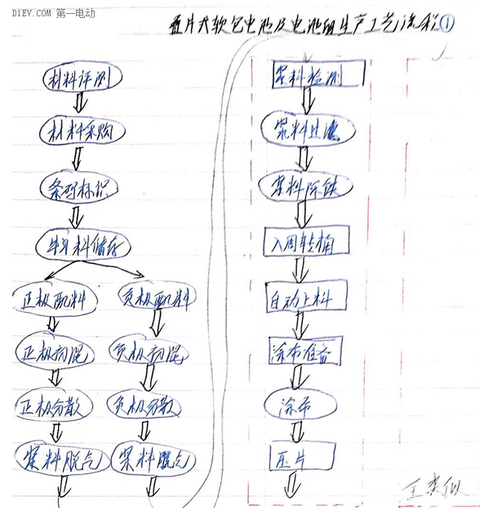 DIEV.COM 第一电动
叠片式软包电池及电池组生产工艺流程①
材料评测
材料采购
条码标识
料储存
正极配料
负极配料
正极初混
负极初混
正极分散
负极分散
浆料脱气
浆料脱气
浆料检测
浆料过滤
浆料除铁
入周转桶
自动上料
涂布准备
涂布
压片